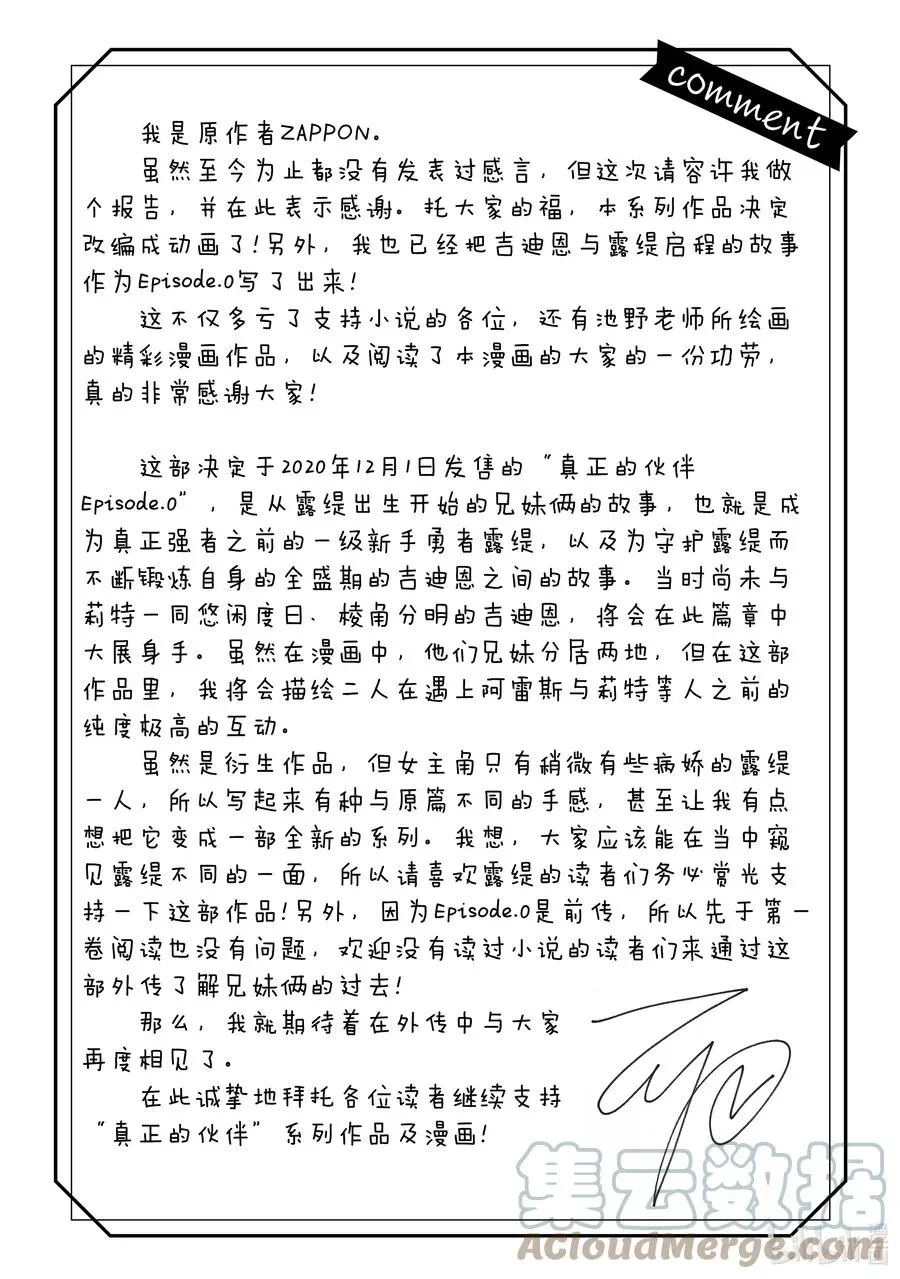 comment
我是原作者ZAPPON。
虽然至今为止都没有发表过感言，但这次请容许我做
个报告，并在此表示感谢。托大家的福，本系列作品决定
改编成动画了！另外，我也已经把吉迪恩与露缇启程的故事
作为Episode.0写了出来！
这不仅多亏了支持小说的各位，还有池野老师所绘画
的精彩漫画作品，以及阅读了本漫画的大家的一份功劳，
真的非常感谢大家！
这部决定于2020年12月1日发售的“真正的伙伴
Episode.0”，是从露缇出生开始的兄妹俩的故事，也就是成
为真正强者之前的一级新手勇者露缇，以及为守护露缇而
不断锻炼自身的全盛期的吉迪恩之间的故事。当时尚未与
莉特一同悠闲度日、棱角分明的吉迪恩，将会在此篇章中
大展身手。虽然在漫画中，他们兄妹分居两地，但在这部
作品里，我将会描绘二人在遇上阿雷斯与莉特等人之前的
纯度极高的互动。
虽然是衍生作品，但女主角只有稍微有些病娇的露缇
一人，所以写起来有种与原篇不同的手感，甚至让我有点
想把它变成一部全新的系列。我想，大家应该能在当中窥
见露缇不同的一面，所以请喜欢露缇的读者们务必赏光支
持一下这部作品！另外，因为Episode.0是前传，所以先于第一
卷阅读也没有问题，欢迎没有读过小说的读者们来通过这
部外传了解兄妹俩的过去！
那么，我就期待着在外传中与大家
再度相见了。
在此诚挚地拜托各位读者继续支持
“真正的伙伴”系列作品及漫画！
集云数据
ACloudMerge.com